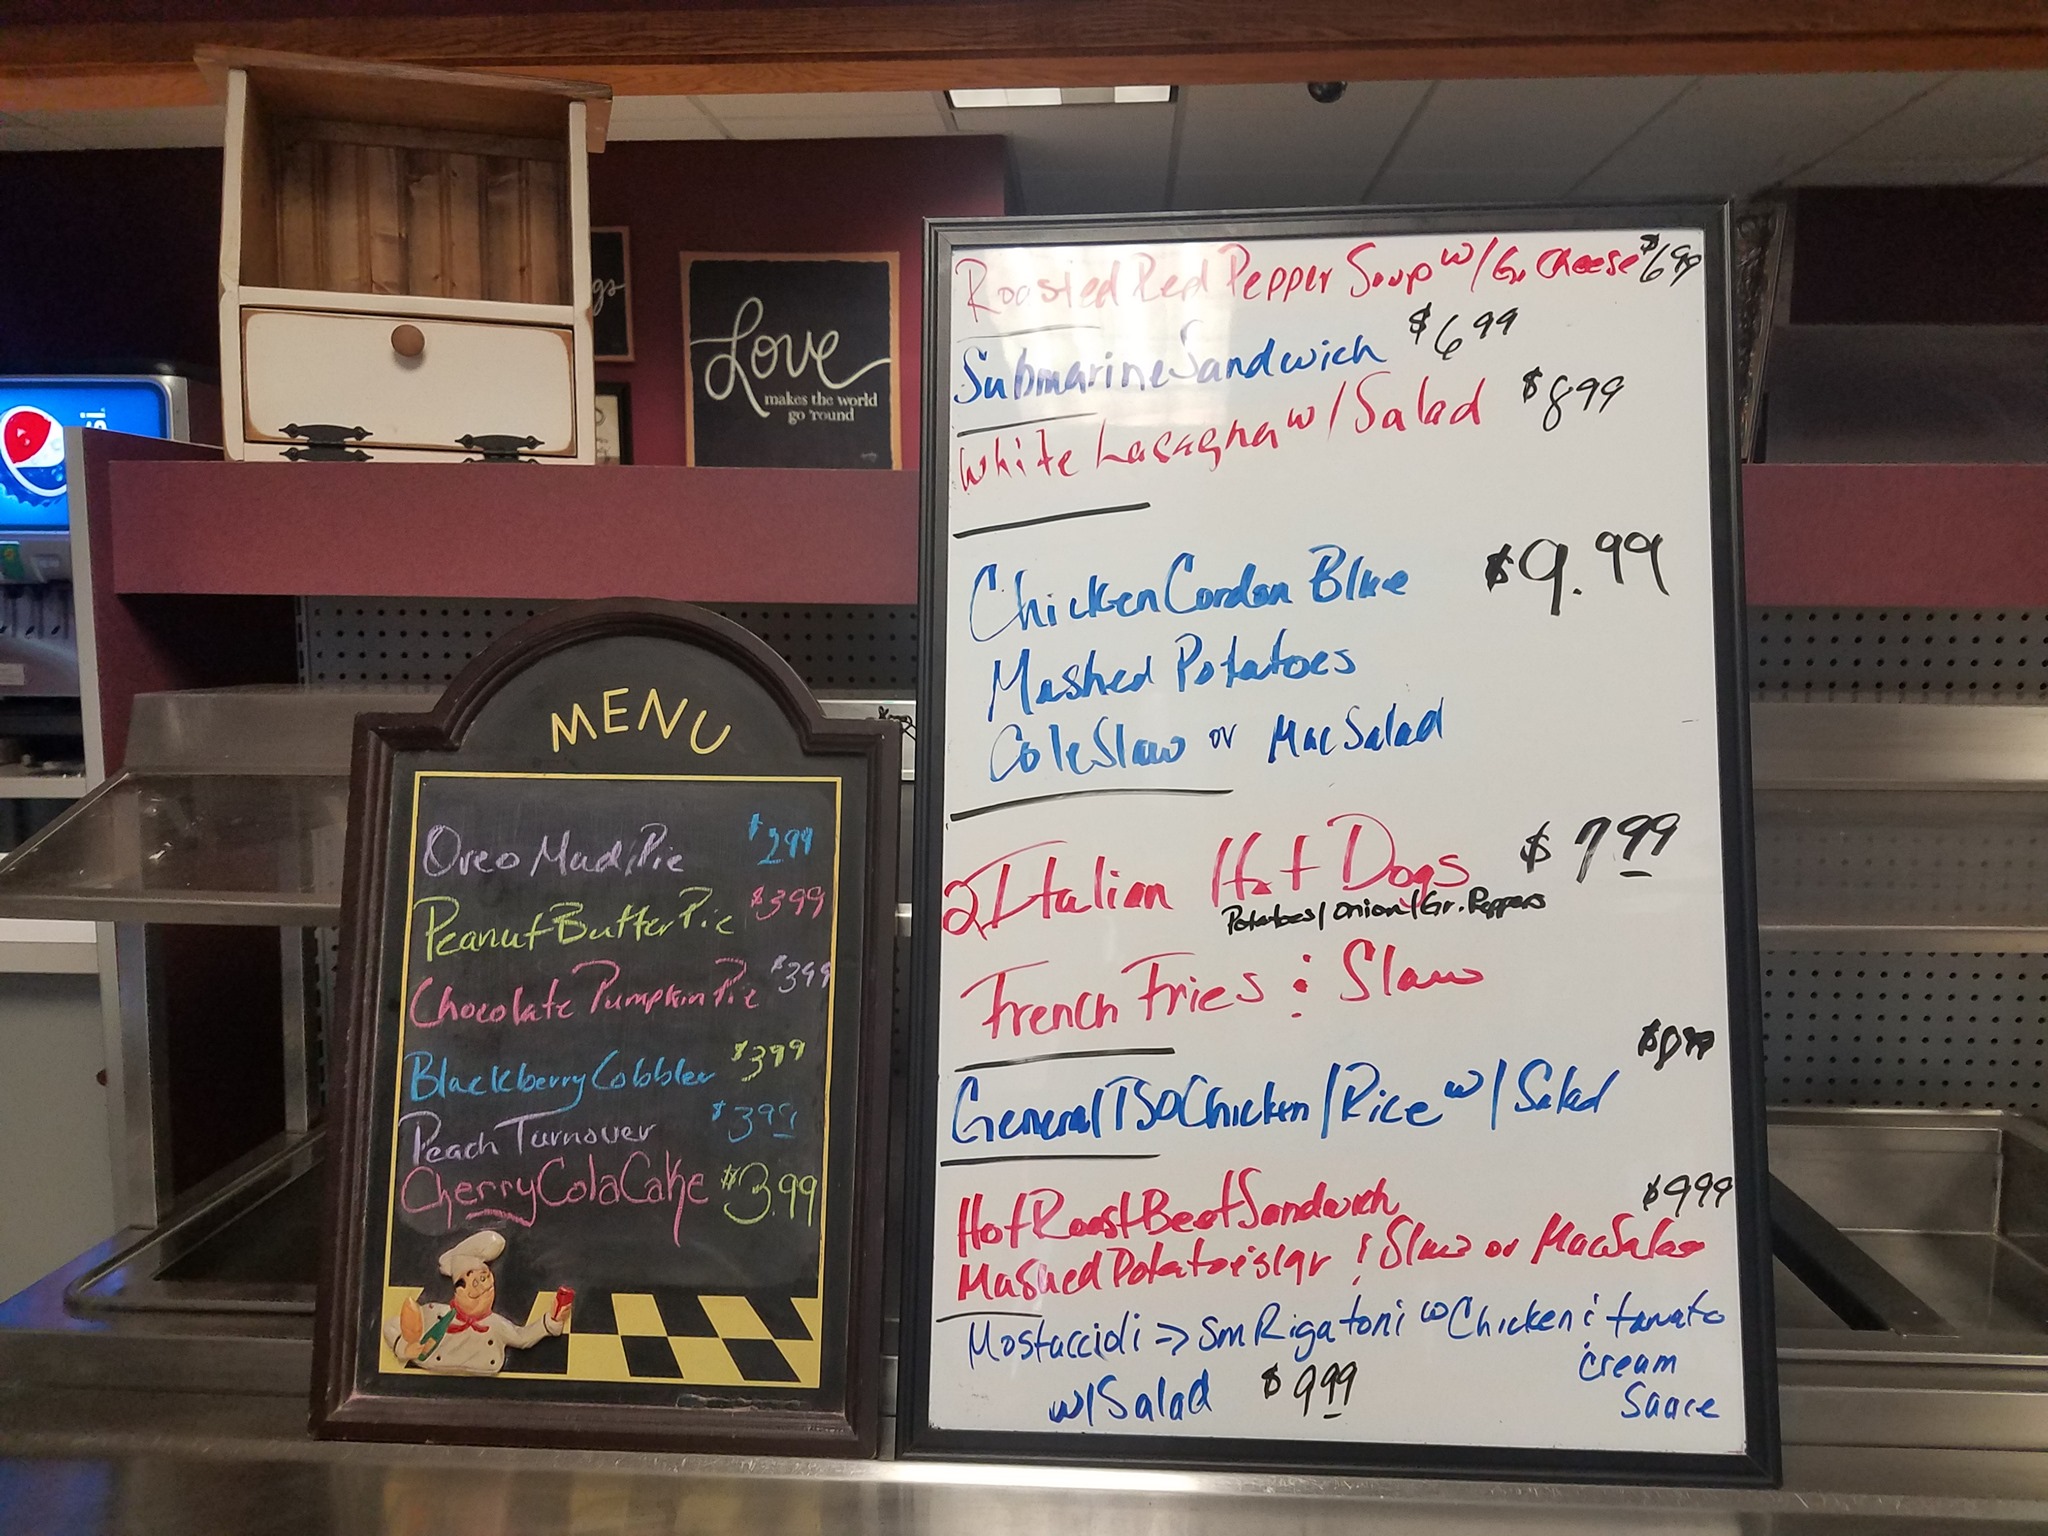 Love
makes the world
go 'round
gs
MENU
Oreo Mud Pie $2.99
Peanut Butter Pie $3.99
Chocolate Pumpkin Pie $3.99
Blackberry Cobbler $3.99
Peach Turnover $3.99
Cherry Cola Cake $3.99
Roasted Red Pepper Soup w/Gr. Cheese $6 99
Submarine Sandwich $6 99
White Lasagna w/Salad $8 99
Chicken Cordon Blue $9.99
Mashed Potatoes
Cole Slaw or Mac Salad
2 Italian Hot Dogs $7 99
Potatoes/Onion/Gr. Peppers
French Fries & Slaw
General TSO Chicken/Rice w/Salad $8 99
Hot Roast Beef Sandwich $9 99
Mashed Potatoes/gr & Slaw or Mac Salad
Mostaccioli => Sm Rigatoni w Chicken & tomato
cream
w/Salad $9 99 Sauce